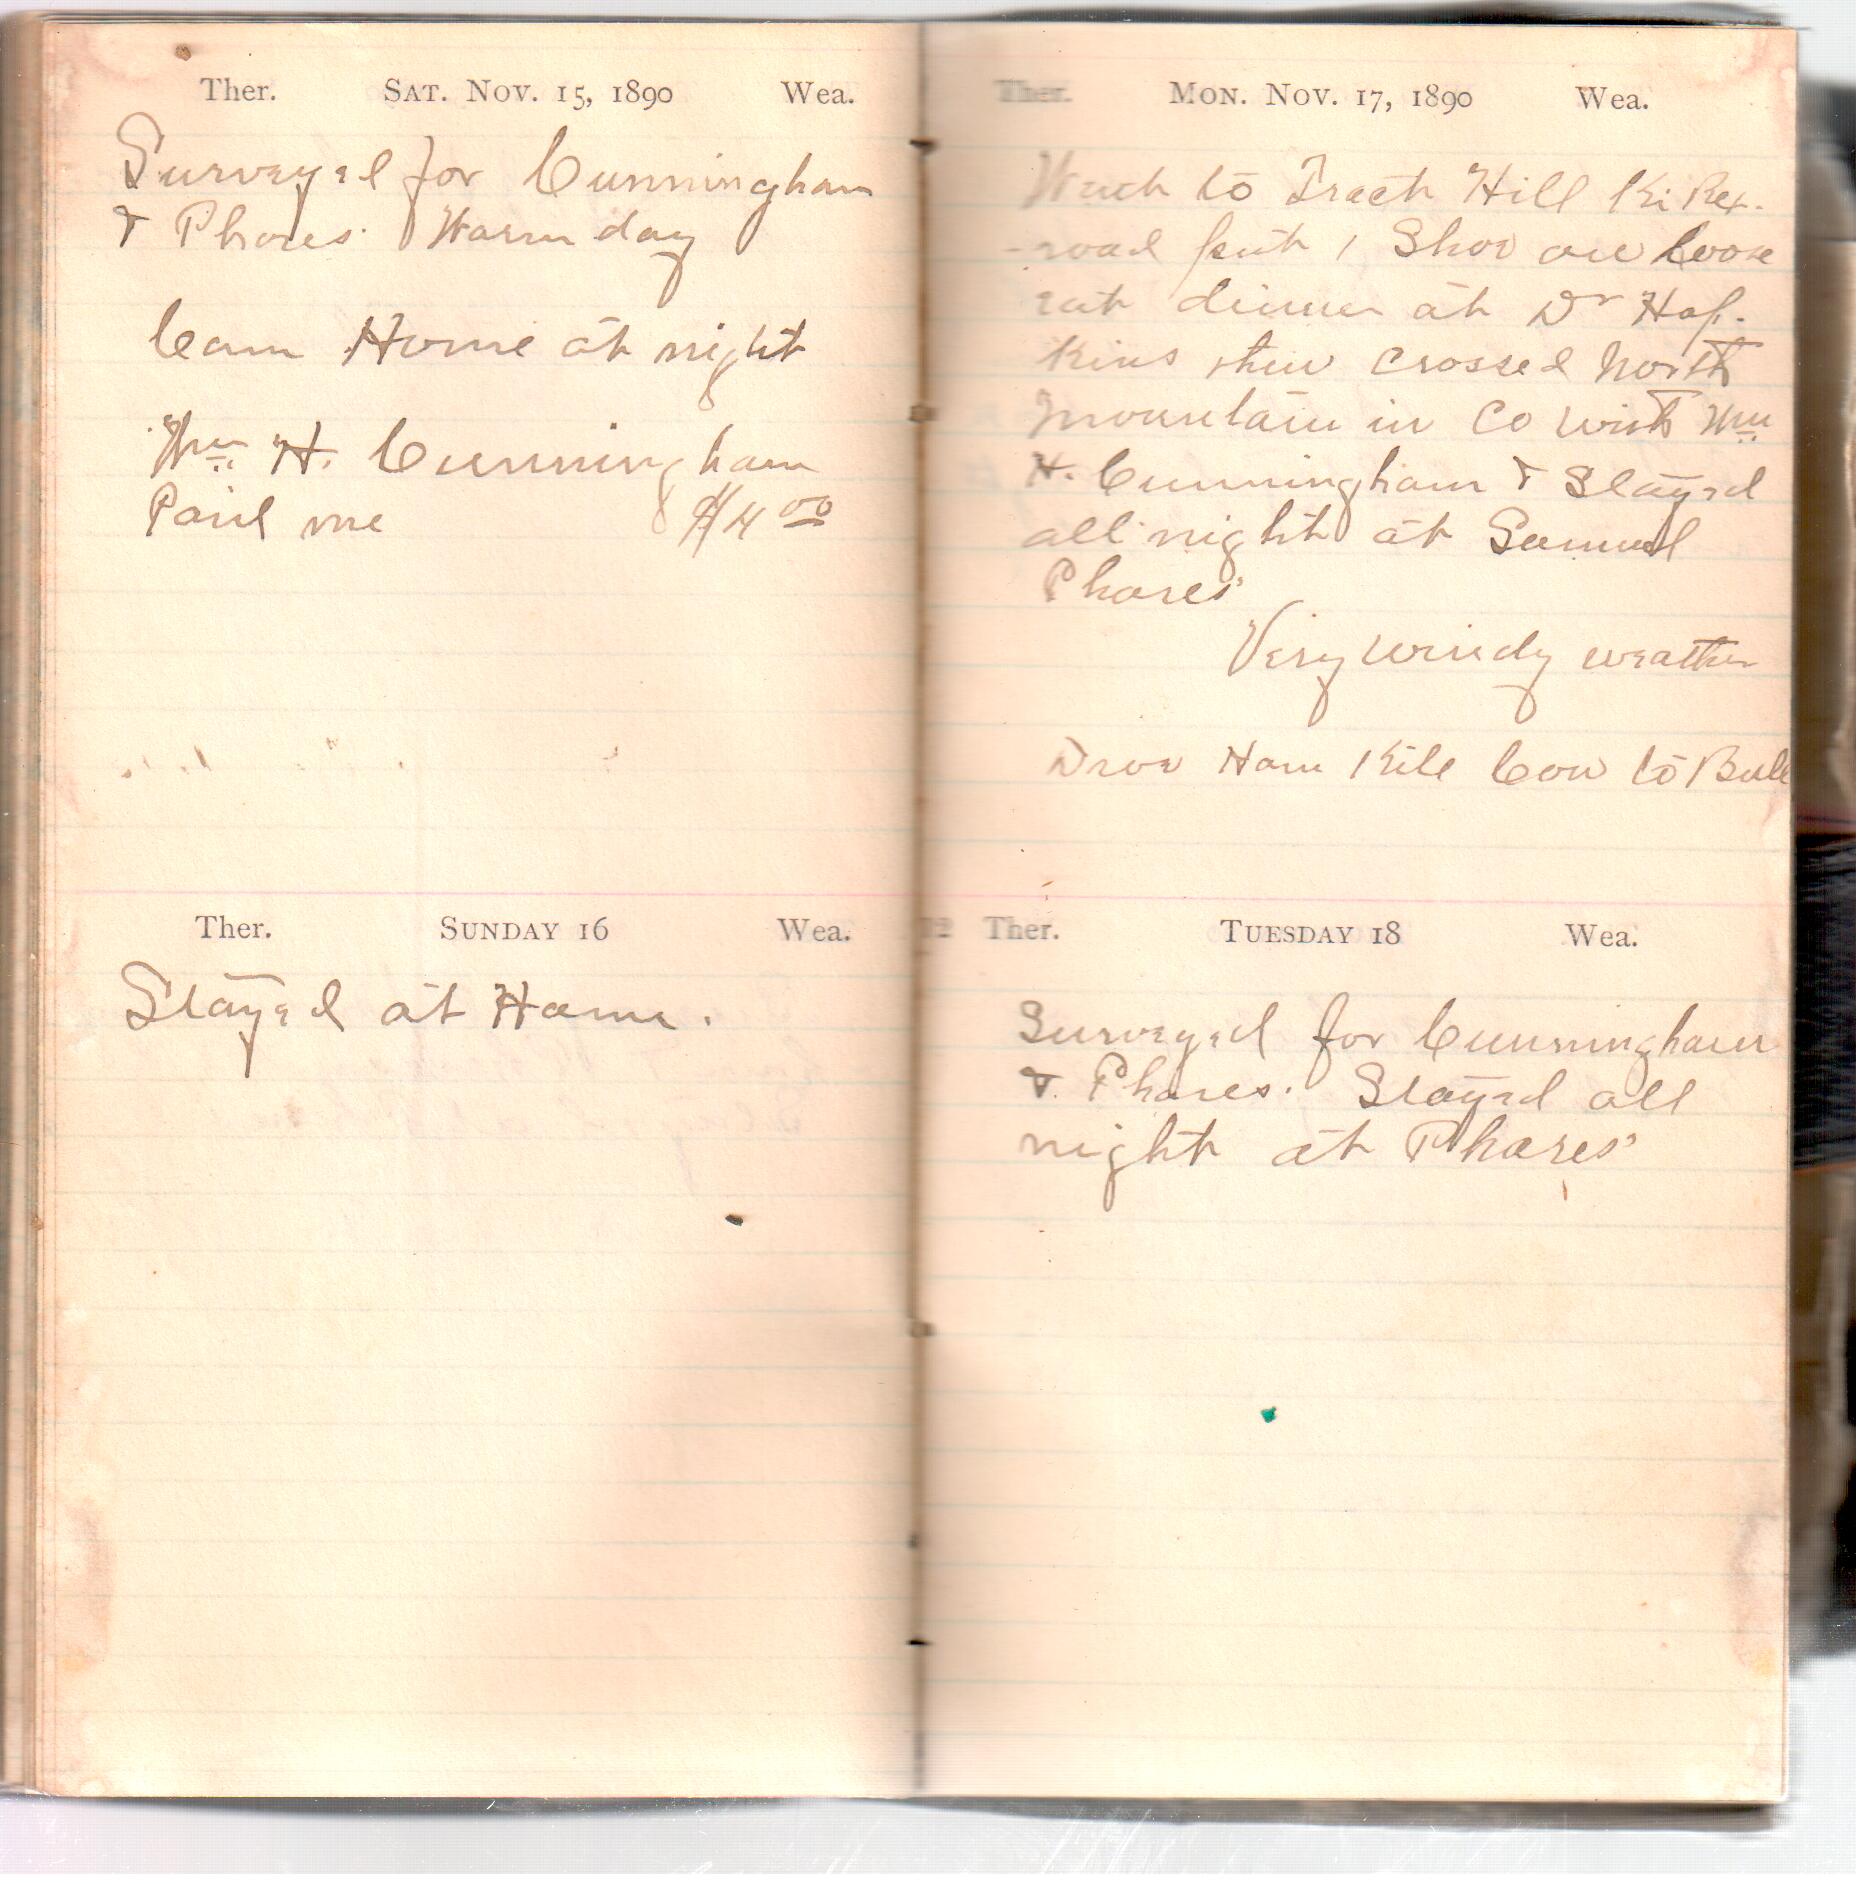 Ther. SAT. NOV. 15, 1890 Wea.
Surveyed for Cunningham
& Phares. Warm day
Cam Home at night
Wm H. Cunningham
Paid me $4 00
Ther. SUNDAY 16 Wea.
Stayed at Home.
Ther. MON. NOV. 17, 1890 Wea.
to Tract Hill
-road put 1 Shoe on
eat dinner at Dr Hop-
kins then crossed North
Mountain in Co with Wm
H. Cunningham & Stayed
all night at Samuel
Phares'
Very windy weather
Drov Ham Kile Cow to Bull
Ther. TUESDAY 18 Wea.
Surveyed for Cunningham
& Phares. Stayed all
night at Phares'